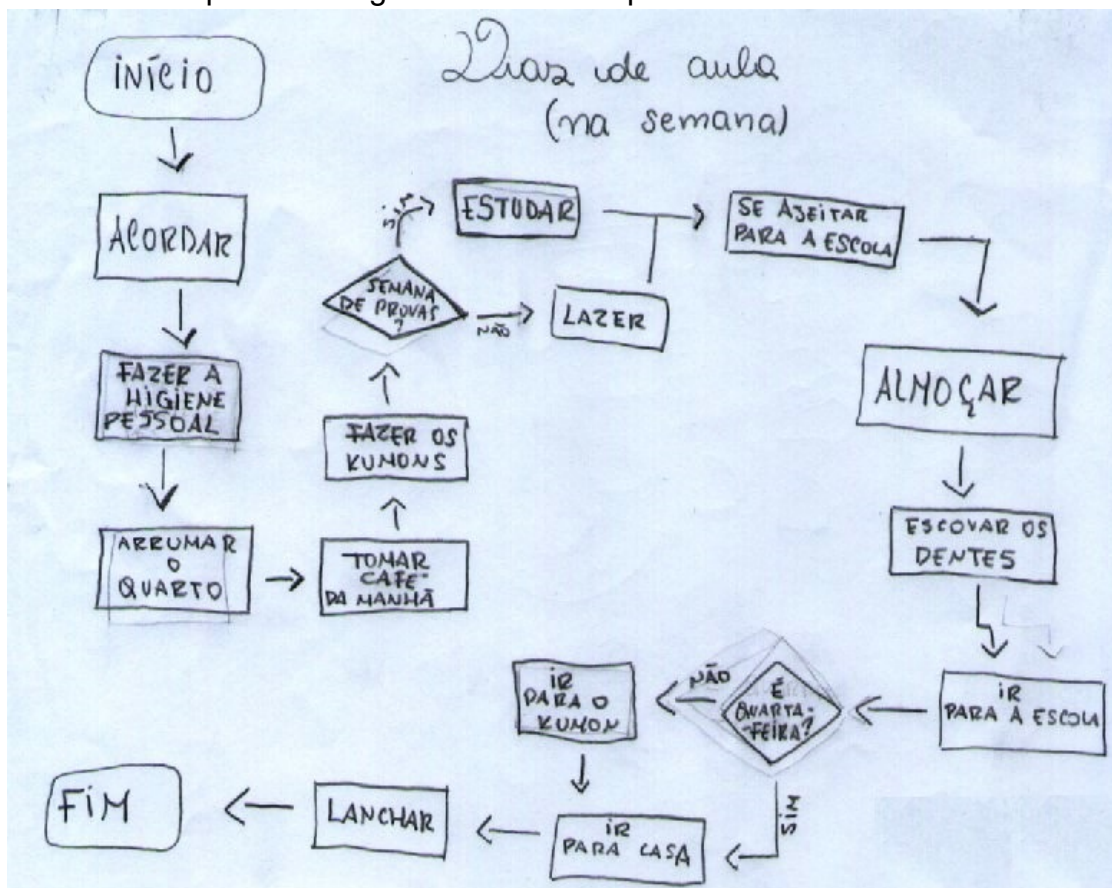 Dias de aula
(na semana)
INÍCIO
ACORDAR
FAZER A
HIGIENE
PESSOAL
ARRUMAR
O
QUARTO
TOMAR
CAFÉ
DA MANHÃ
FAZER OS
KUMONS
SEMANA
DE PROVAS
?
SIM
ESTUDAR
NÃO
LAZER
SE AJEITAR
PARA A ESCOLA
ALMOÇAR
ESCOVAR OS
DENTES
IR
PARA A ESCOLA
É
QUARTA-
-FEIRA?
NÃO
IR
PARA O
KUMON
SIM
IR
PARA CASA
LANCHAR
FIM